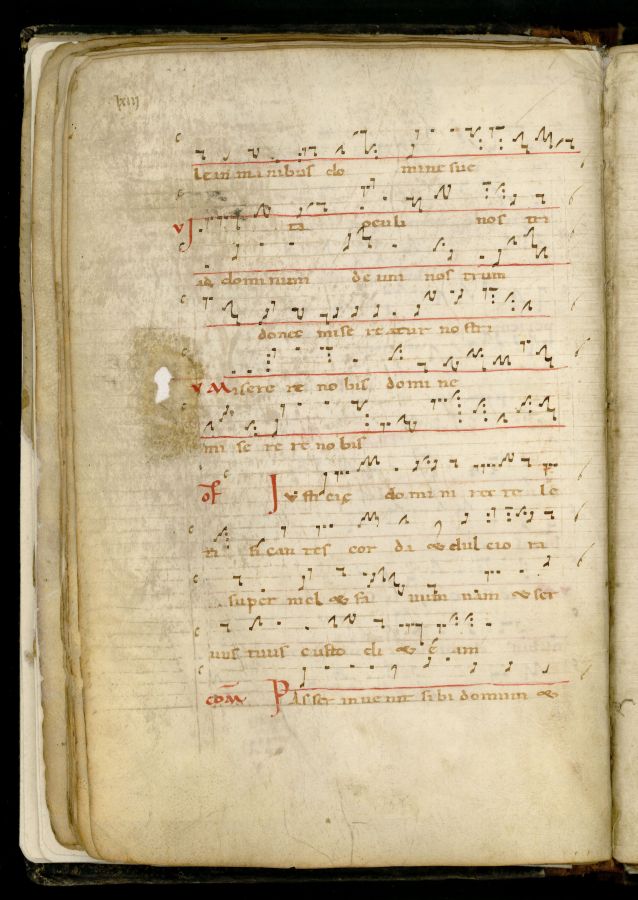 lxiij
le in ma nibus do mine sue
V I ta oculi nos tri
ad dominum deum nos trum
donec mise re atur no stri
V Misere re no bis domi ne
mi se re re no bis
of Iu sti cię do mi ni rec te le
ti fi can tes cor da & dul cio ra
super mel & fa uum nam & ser
uus tuus custo di & e am
com Passer inue nit sibi domum &